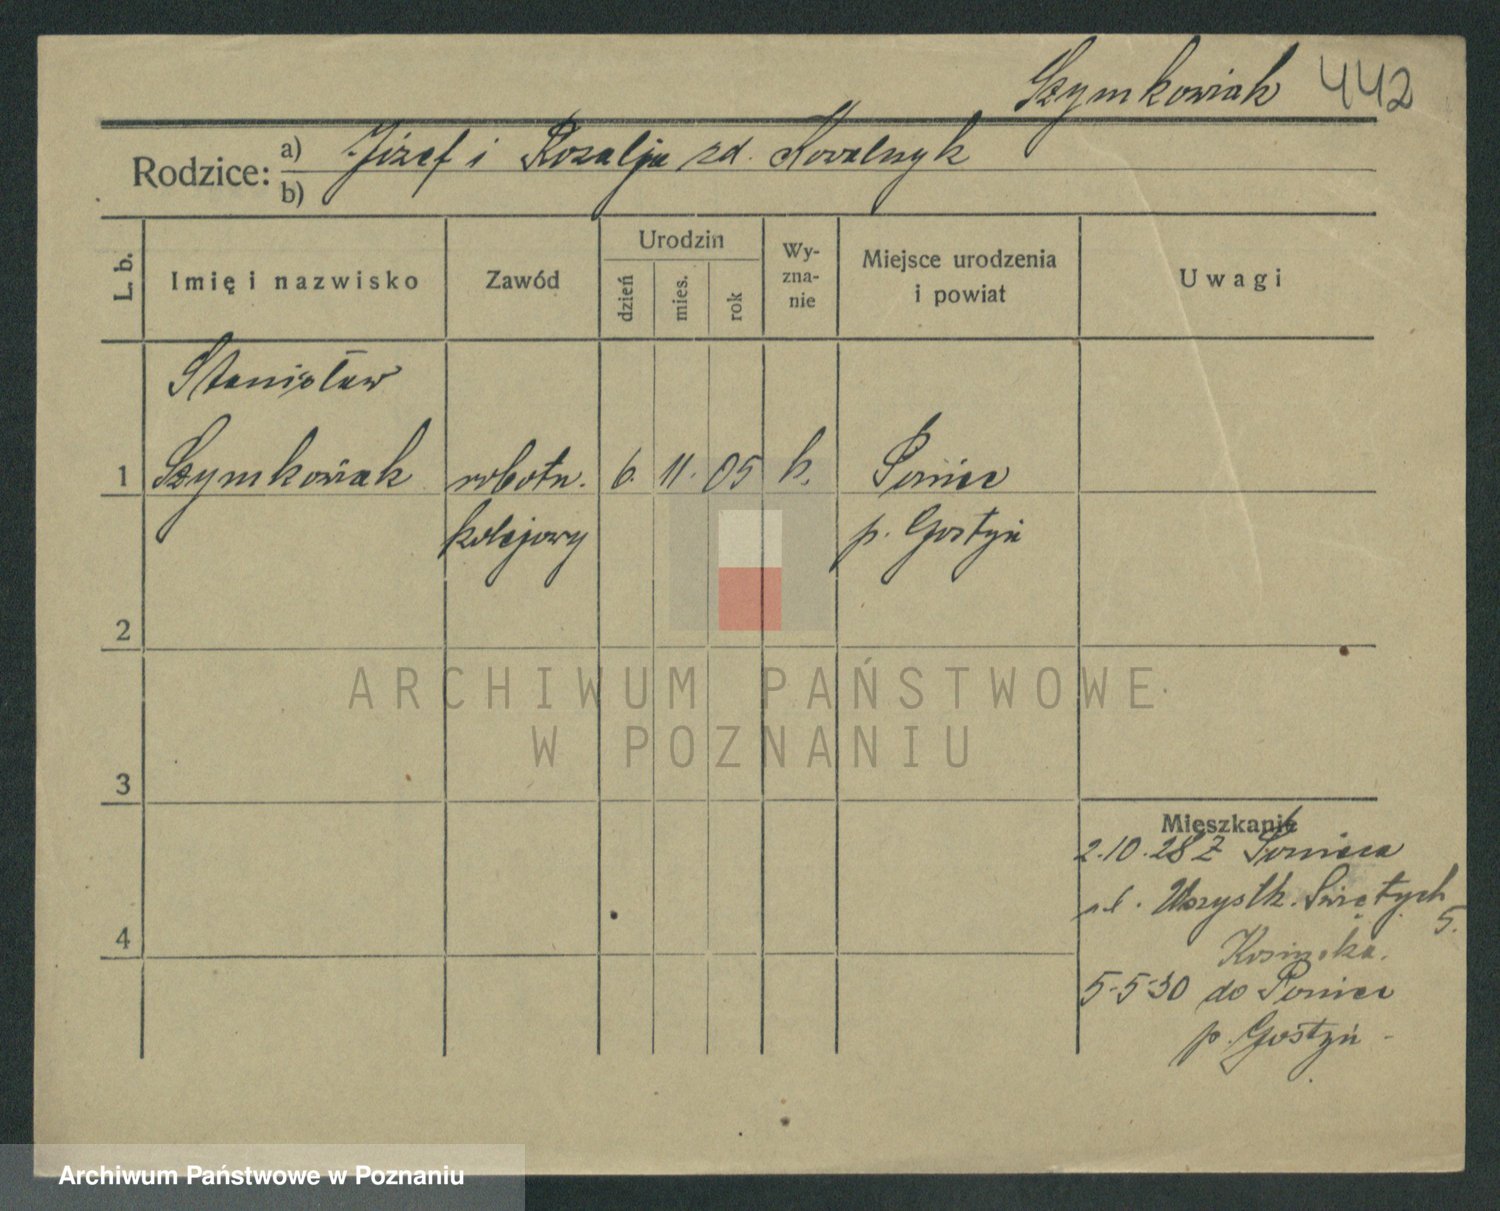 Szymkowiak 442
Rodzice: a) Józef i Rozalja zd. Kovalczyk
b)
L. b.
Imię i nazwisko
Zawód
Urodzin
dzień
mies.
rok
Wy-
zna-
nie
Miejsce urodzenia
i powiat
Uwagi
Stanisław
1 Szymkowiak robotn. 6. 11. 05 k. Poniec
kolejowy p. Gostyń
2
3
4
Mieszkanie
2.10.28 z Ponieca
ul. Wszystk. Świętych
5.
Kosińska.
5-5-30 do Poniec
p. Gostyń -
ARCHIWUM PAŃSTWOWE
W POZNANIU
Archiwum Państwowe w Poznaniu